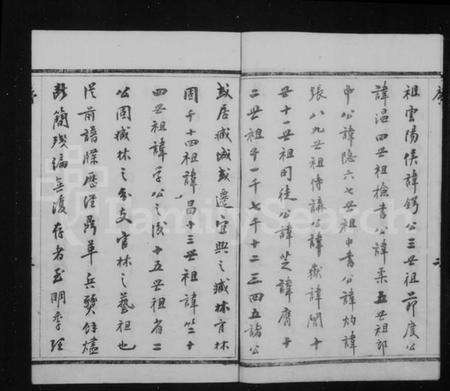 祖雲陽侯諱鍔公三世祖節度公
諱温四世祖檢書公諱柔五世祖郎
中公諱隱六七世祖中書公諱灼諱
張八九世祖侍講公諱 諱聞十
世十一世祖司徒公諱芝諱膺十
二世祖千一千七千十二三四五諸公
或居臧城或遷宜興之臧林官林
因千十四祖諱昌十三世祖諱竺十
四世祖諱孚公之後十五世祖省二
公因臧林之分支官林之藝祖也
從前譜牒歷經鼎革兵燹餘燼
斷簡殘編無復存者至明季經
FamilySearch